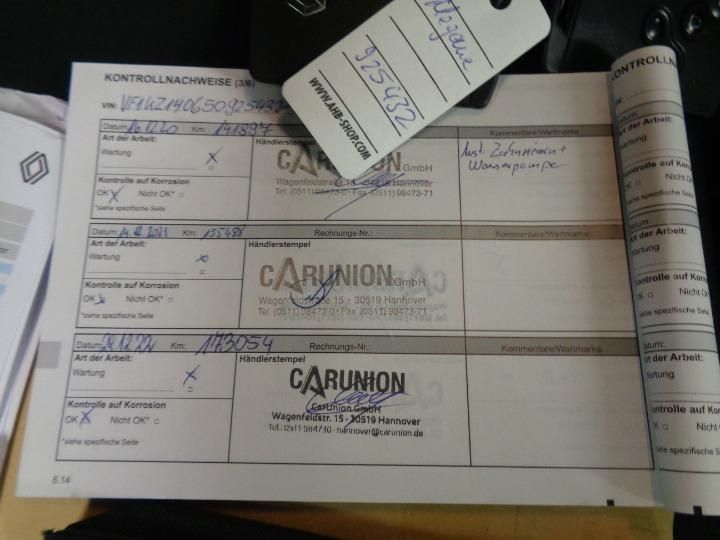 Megane
925432
WWW.AHB-SHOP.COM
KONTROLLNACHWEISE (3/6)
VIN: VF1KZ140650925432
Datum: 16.12.20 Km: 141897
Kommentare/Wertmarke
Art der Arbeit:
Wartung X
Händlerstempel
CARUNION GmbH
Wagenfeldstraße 15 · 30519 Hannover
Tel. (0511) 98473-0 · Fax (0511) 98473-71
Aust. Zahnriemen +
Wasserpumpe
Kontrolle auf Korrosion
OK X Nicht OK*
*siehe spezifische Seite
Datum: 14.12.2021 Km: 155488 Rechnungs-Nr.:
Art der Arbeit:
Wartung X
Händlerstempel
CARUNION GmbH
Wagenfeldstraße 15 · 30519 Hannover
Tel. (0511) 98473-0 · Fax (0511) 98473-71
Kontrolle auf Korrosion
OK X Nicht OK*
*siehe spezifische Seite
Datum: 22 Km: 173054 Rechnungs-Nr.: Kommentare/Wertmarke
Art der Arbeit:
Wartung X
Händlerstempel
CARUNION
CarUnion GmbH
Wagenfeldstr. 15 · 30519 Hannover
Tel.: 0511 984730 · hannover@carunion.de
Kontrolle auf Korrosion
OK X Nicht OK*
*siehe spezifische Seite
6.14
KONTROLLN
Datum:
Art der Arbeit:
Wartung
Kontrolle auf Korros
Nicht OK
*siehe spezifische Seite
Datum:
Art der Arbeit:
Wartung
Kontrolle auf Korr
Nicht O
*siehe spezifische S
Datum:
Art der Arbeit:
Wartung
Kontrolle auf Kor
Nicht
*siehe spezifische S